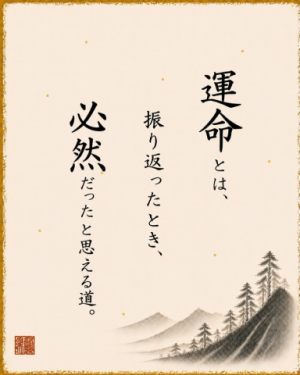 運命とは、
振り返ったとき、
必然だったと思える道。